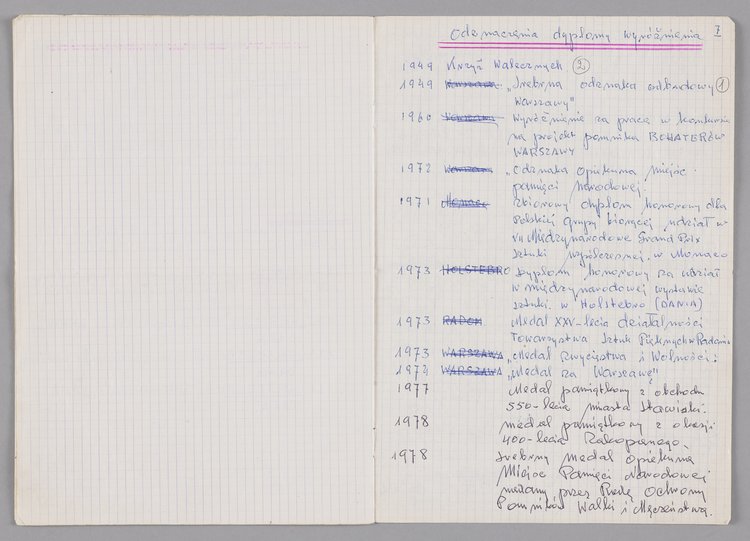 Odznaczenia dyplomy wyróżnienia 7
1949 Krzyż Walecznych (2)
1949 Warszawa „Srebrna odznaka odbudowy (1)
Warszawy"
1960 Warszawa Wyróżnienie za pracę w konkursie
na projekt pomnika BOHATERÓW
WARSZAWY
1972 Warszawa „Odznaka opiekuna miejsc
pamięci narodowej.
1971 Monaco Zbiorowy dyplom honorowy dla
Polskiej grupy biorącej udział w
VII Międzynarodowe Grand Prix
Sztuki współczesnej w Monaco
1973 HOLSTEBRO Dyplom honorowy za udział
w międzynarodowej wystawie
sztuki w Holstebro (DANIA)
1973 RADOM Medal XXV-lecia działalności
Towarzystwa Sztuk Pięknych w Radomiu
1973 WARSZAWA „Medal Zwycięstwa i Wolności"
1972 WARSZAWA „Medal za Warszawę"
1977 Medal pamiątkowy z obchodu
550-lecia miasta Stawiski.
1978 medal pamiątkowy z okazji
400-lecia Zakopanego.
1978 srebrny medal opiekuna
Miejsc Pamięci Narodowej
nadany przez Radę Ochrony
Pomników Walki i Męczeństwa.